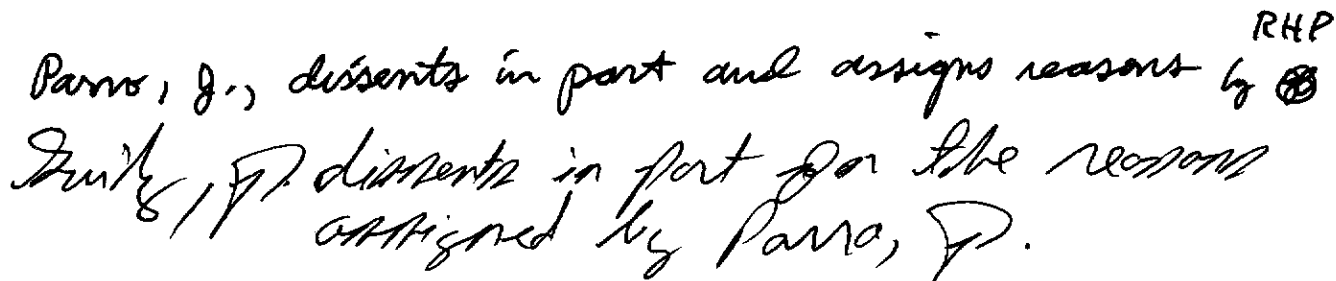 RHP
Parro, J., dissents in part and assigns reasons by
Guidry, J. dissents in part for the reasons
assigned by Parro, J.